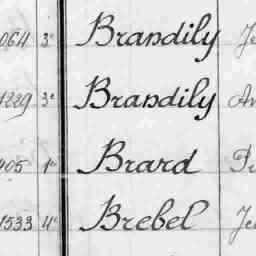 064 3e Brandily Je
1229 3e Brandily Av
405 1e Brard Fr
1533 4e Brebel Je